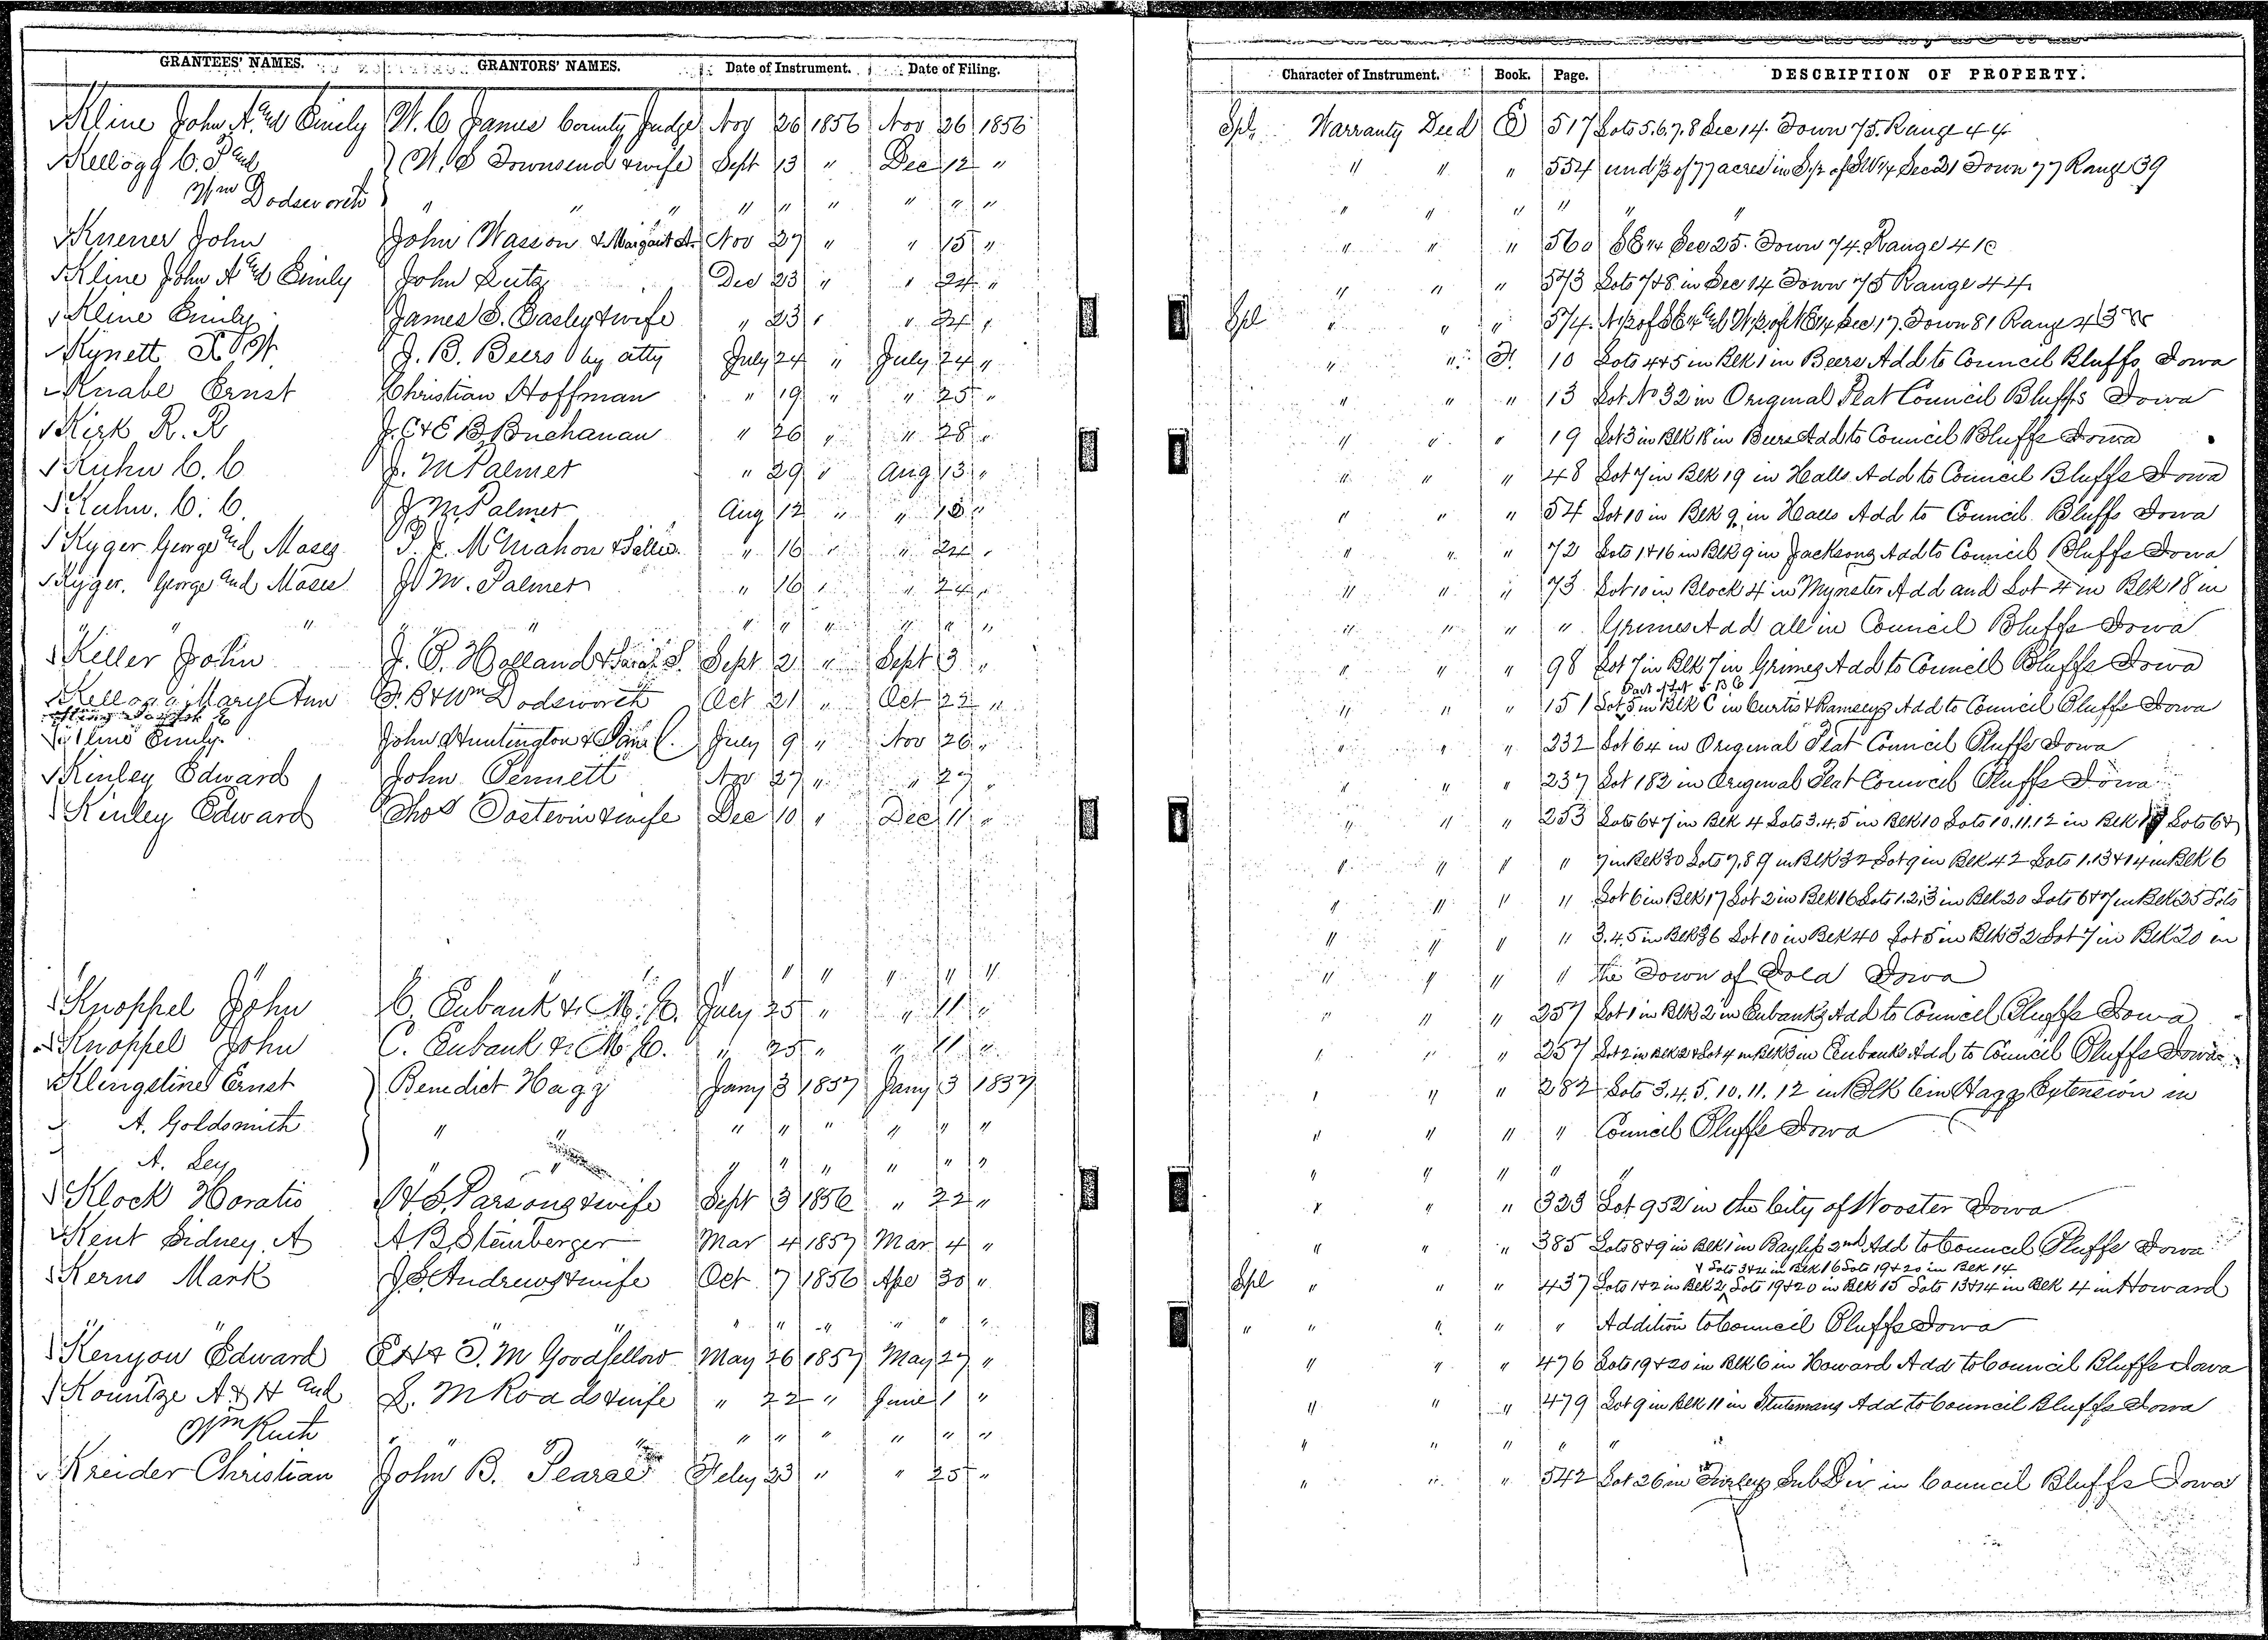 GRANTEES' NAMES. GRANTORS' NAMES. Date of Instrument. Date of Filing. Character of Instrument. Book. Page. DESCRIPTION OF PROPERTY.
Kline John A. and Emily W. C. James County Judge Nov 26 1856 Nov 26 1856 Spl. Warranty Deed E 517 Lots 5.6.7.8 Sec 14. Town 75. Range 44
Kellogg C. P and W. S Townsend & wife Sept 13 " Dec 12 " " " " 554 und 1/3 of 77 acres in S1/2 of SW1/4 Sec 21 Town 77 Range 39
Wm Dodsworth " " " " " " " " " " " " " " "
John John Wasson & Margaret A. Nov 27 " " 15 " " " " 560 SE1/4 Sec 25. Town 74. Range 41
Kline John A and Emily John Lutz Dec 23 " " 24 " " " " 573 Lots 7&8 in Sec 14 Town 75 Range 44
Kline Emily James S. Easley & wife " 23 " " 24 " Spl " " " 574 N1/2 of SE1/4 and W1/2 of NE1/4 Sec 17. Town 81 Range 43
Kynett J. B. Beers by atty July 24 " July 24 " " " F. 10 Lots 4&5 in Blk 1 in Beers Add to Council Bluffs Iowa
Knabe Ernst Christian Hoffman " 19 " " 25 " " " " 13 Lot No 32 in Original Plat Council Bluffs Iowa
Kirk R. R J. C & E B. Buchanan " 26 " " 28 " " " " 19 Lot 3 in Blk 18 in Beers Add to Council Bluffs Iowa
Kuhn C. C J. M Palmer " 29 " Aug 13 " " " " 48 Lot 7 in Blk 19 in Halls Add to Council Bluffs Iowa
Kuhn. C. C. J M. Palmer Aug 12 " " 18 " " " " 54 Lot 10 in Blk 9 in Halls Add to Council Bluffs Iowa
Kyger George and Moses McMahon & " 16 " " 24 " " " " 72 Lots 1&16 in Blk 9 in Jacksons Add to Council Bluffs Iowa
Kyger. George and Moses J M. Palmer " 16 " " 24 " " " " 73 Lot 10 in Block 4 in Mynster Add and Lot 4 in Blk 18 in
" " " " " " " " " " " " " " Grimes Add all in Council Bluffs Iowa
Keller John J. P. Holland & Sarah S. Sept 2 " Sept 3 " " " " 98 Lot 7 in Blk 7 in Grimes Add to Council Bluffs Iowa
Part of Lot 5 B C
Kellogg Mary Ann F. B & Wm Dodsworth Oct 21 " Oct 22 " " " " 151 Lot 5 in Blk C in Curtis & Ramseys Add to Council Bluffs Iowa
Kline Emily. John Huntington & July 9 " Nov 26 " " " " 232 Lot 64 in Original Plat Council Bluffs Iowa
Kinley Edward John Pennett Nov 27 " " 27 " " " " 237 Lot 182 in Original Plat Council Bluffs Iowa
Kinley Edward Thos Oostevin & wife Dec 10 " Dec 11 " " " " 253 Lots 6&7 in Blk 4 Lots 3.4.5 in Blk 10 Lots 10.11.12 in Blk Lots 6&
" " " " 7 in Blk 30 Lots 7.8 9 in Blk 32 Lot 9 in Blk 42 Lots 1.13&14 in Blk 6
" " " " Lot 6 in Blk 17 Lot 2 in Blk 16 Lots 1.2.3 in Blk 20 Lots 6&7 in Blk 25 Lots
" " " " 3.4.5 in Blk 36 Lot 10 in Blk 40 Lot 5 in Blk 32 Lot 7 in Blk 20 in
" " " " " " " " " " " " " the Town of Iola Iowa
Knoppel John C. Eubank & M. E. July 25 " " 11 " " " " 257 Lot 1 in Blk 2 in Eubanks Add to Council Bluffs Iowa
Knoppel John C. Eubank & M. E. " 25 " " 11 " " " " 257 Lot 2 in Blk 2 & Lot 4 in Blk 3 in Eubanks Add to Council Bluffs Iowa
Klingstine Ernst Benedict Hagg Jany 3 1857 Jany 3 1857 " " " 282 Lots 3.4.5.10.11.12 in Blk 6 in Hagg Extension in
A. Goldsmith " " " " " " " " " " " Council Bluffs Iowa
A. Ley " " " " " " " " " " " " "
Klock Horatio H S. Parsons & wife Sept 3 1856 " 22 " " " " 323 Lot 952 in the City of Wooster Iowa
Kent Sidney. A A B. Steinberger Mar 4 1857 Mar 4 " " " " 385 Lots 8&9 in Blk 1 in Bayliss 2nd Add to Council Bluffs Iowa
& Lots 3&4 in Blk 16 Lots 19&20 in Blk 14
Kerns Mark J S. Andrews & wife Oct 7 1856 Apr 30 " Spl " " " 437 Lots 1&2 in Blk 2, Lots 19&20 in Blk 15 Lots 13&14 in Blk 4 in Howard
" " " " " " " " " " " " " Addition to Council Bluffs Iowa
Kenyon Edward T. M Goodfellow May 26 1857 May 27 " " " " 476 Lots 19&20 in Blk 6 in Howard Add to Council Bluffs Iowa
Kountze A & H and L. M Roads & wife " 22 " June 1 " " " " 479 Lot 9 in Blk 11 in Stutsmans Add to Council Bluffs Iowa
Wm Ruth " " " " " " " " " " " " " " "
Kreider Christian John B. Pearse Feby 23 " " 25 " " " " 542 Lot 26 in Sub Div in Council Bluffs Iowa